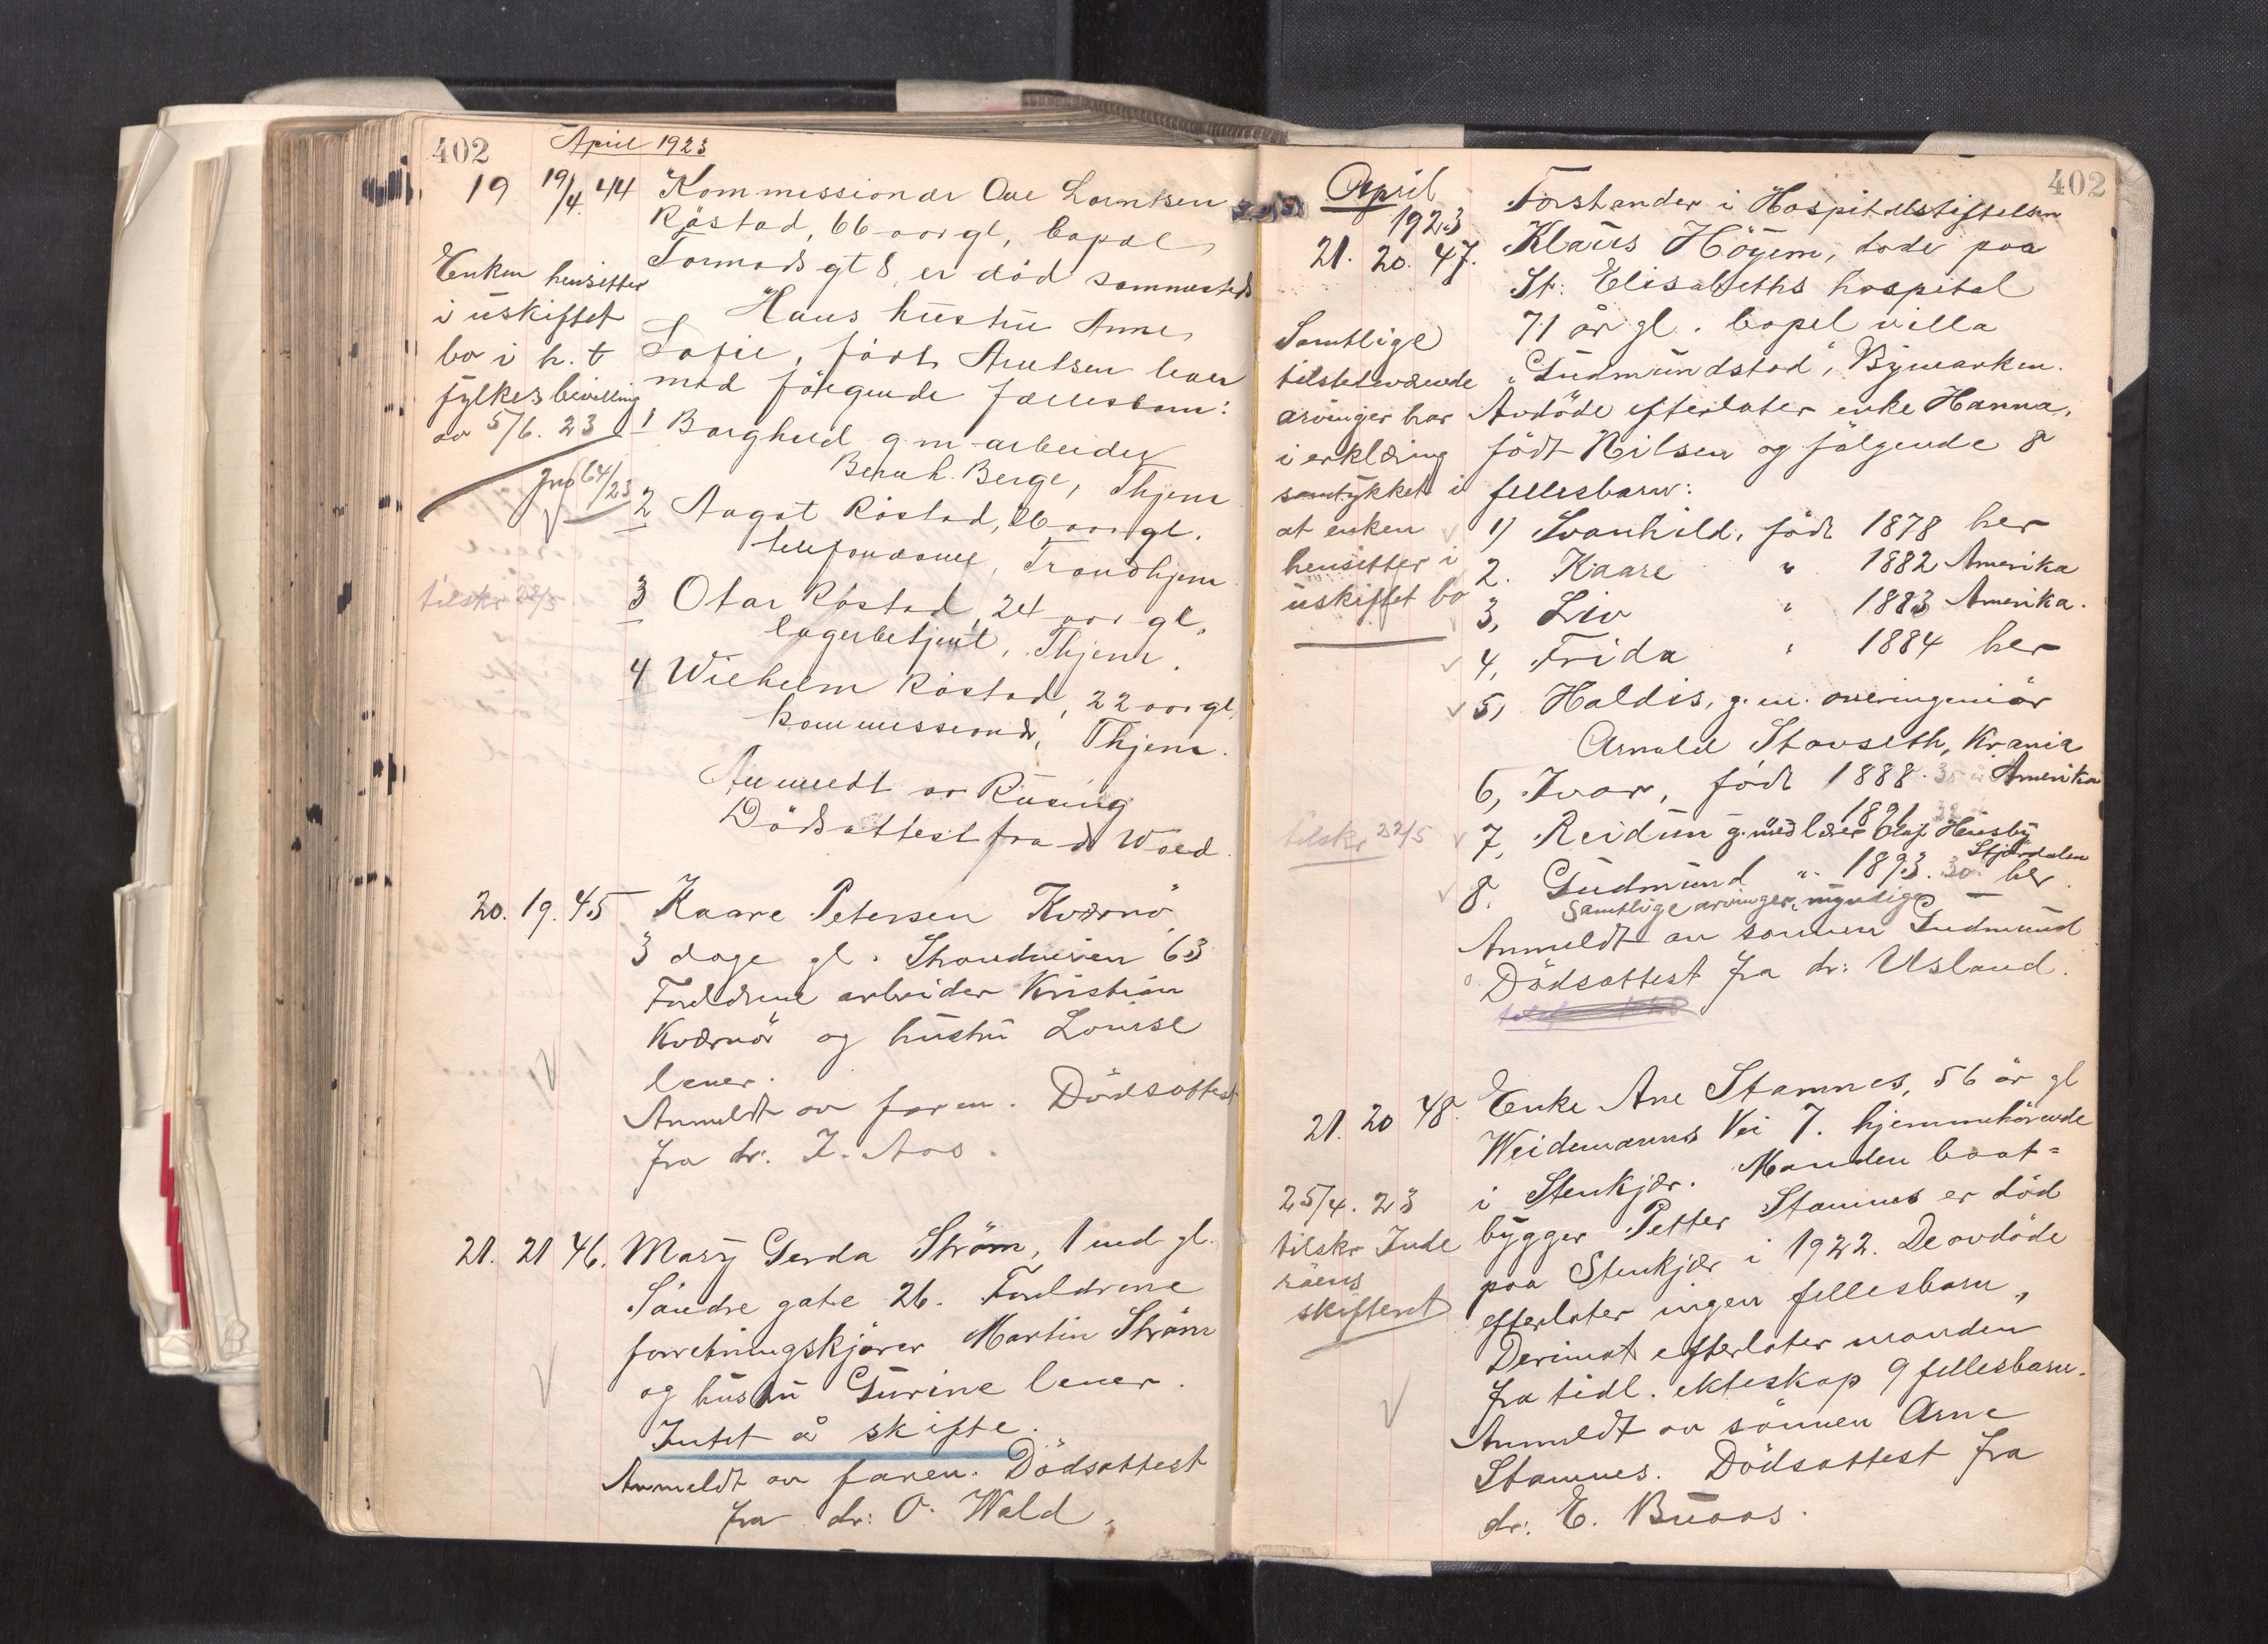 402 April 1923
19 19/4. 44 Kommissionær Ove Lorntsen
Röstad, 66 aar gl, bopæl
Tormods gt 8, er död sammesteds
Hans hustru Anne
Sofie, född Arntsen lever
med fölgende fællesbarn:
1 Borghild g m arbeider
Bernh. Berge, Thjem
2 Aagot Röstad, 26 aar gl.
telefondame, Trondhjem
3 Otar Röstad, 24 aar gl.
lagerbetjent, Thjem.
4 Wilhelm Röstad, 22 aar gl,
kommissionær, Thjem.
Anmeldt av Rusing
Dödsattest fra dr Wold.
Enken hensitter
i uskiftet
bo i h. t
fylkesbevilling
av 5/6. 23
Jno 64/23
tilskr 22/5
20. 19. 45 Kaare Petersen Kværnö
3 dage gl. Strandveien 63
Forældrene arbeider Kristian
Kværnö og hustru Lovise
lever.
Anmeldt av faren. Dödsattest
fra dr. I. Aas.
21. 21 46. Mary Gerda Ström, 1 md gl.
Söndre gate 26. Forældrene
forretningskjörer Martin Ström
og hustru Gurine lever.
Intet å skifte.
Anmeldt av faren. Dödsattest
fra dr: O. Wald.
402
April
1923
21. 20. 47. Forstander i Hospitalstiftelsen
Klaus Höyem, döde paa
St: Elisabeths hospital
71 år gl. bopel villa
"Gudmundstad", Bymarken.
Avdöde efterlater enke Hanna,
födt Nilsen og fölgende 8
fellesbarn:
1) Svanhild, födt 1878 her
2. Kaare " 1882 Amerika
3, Liv " 1883 Amerika.
4, Frida " 1884 her
5, Haldis, g. m. overingeniör
Arnold Stavseth, Krania
6, Ivar, födt 1888. 35 år Amerika
1891 32
7, Reidun g. med lærer Olaf Heusby
Stjördalen
8. Gudmund " 1893. 30. her.
Samtlige arvinger myndige
Anmeldt av sönnen Gudmund
Dödsattest fra dr: Usland.
Samtlige
tilstedeværende
arvinger har
i erklæring
samtykket i
at enken
hensitter i
uskiftet bo
tilskr 22/5
21. 20 48. Enke Ane Stamnes, 56 år gl
Weidemanns Vei 7. hjemmehörende
i Stenkjær. Manden baat=
bygger Petter Stamnes er död
paa Stenkjær i 1922. De avdöde
efterlater ingen fellesbarn,
Derimot efterlater manden
fra tidl. ekteskap 9 fellesbarn.
Anmeldt av sönnen Arne
Stamnes. Dödsattest fra
dr: E. Buaas.
25/4. 23
tilskr Inde
röens
skifteret